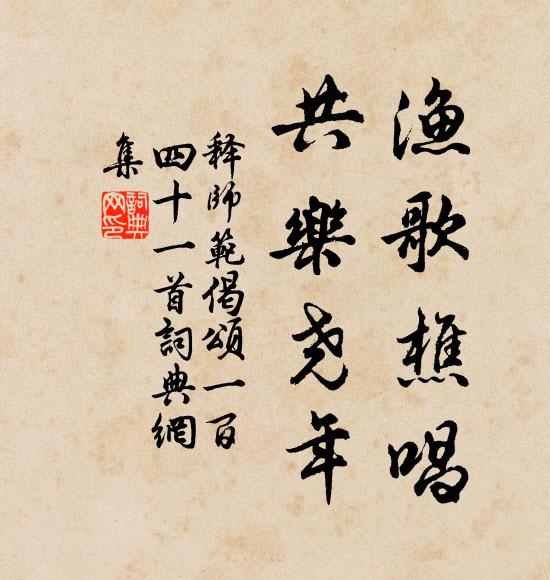 渔歌樵唱
共樂尧年
释師範偈頌一百
四十一首詞典網
集
詞典
网印